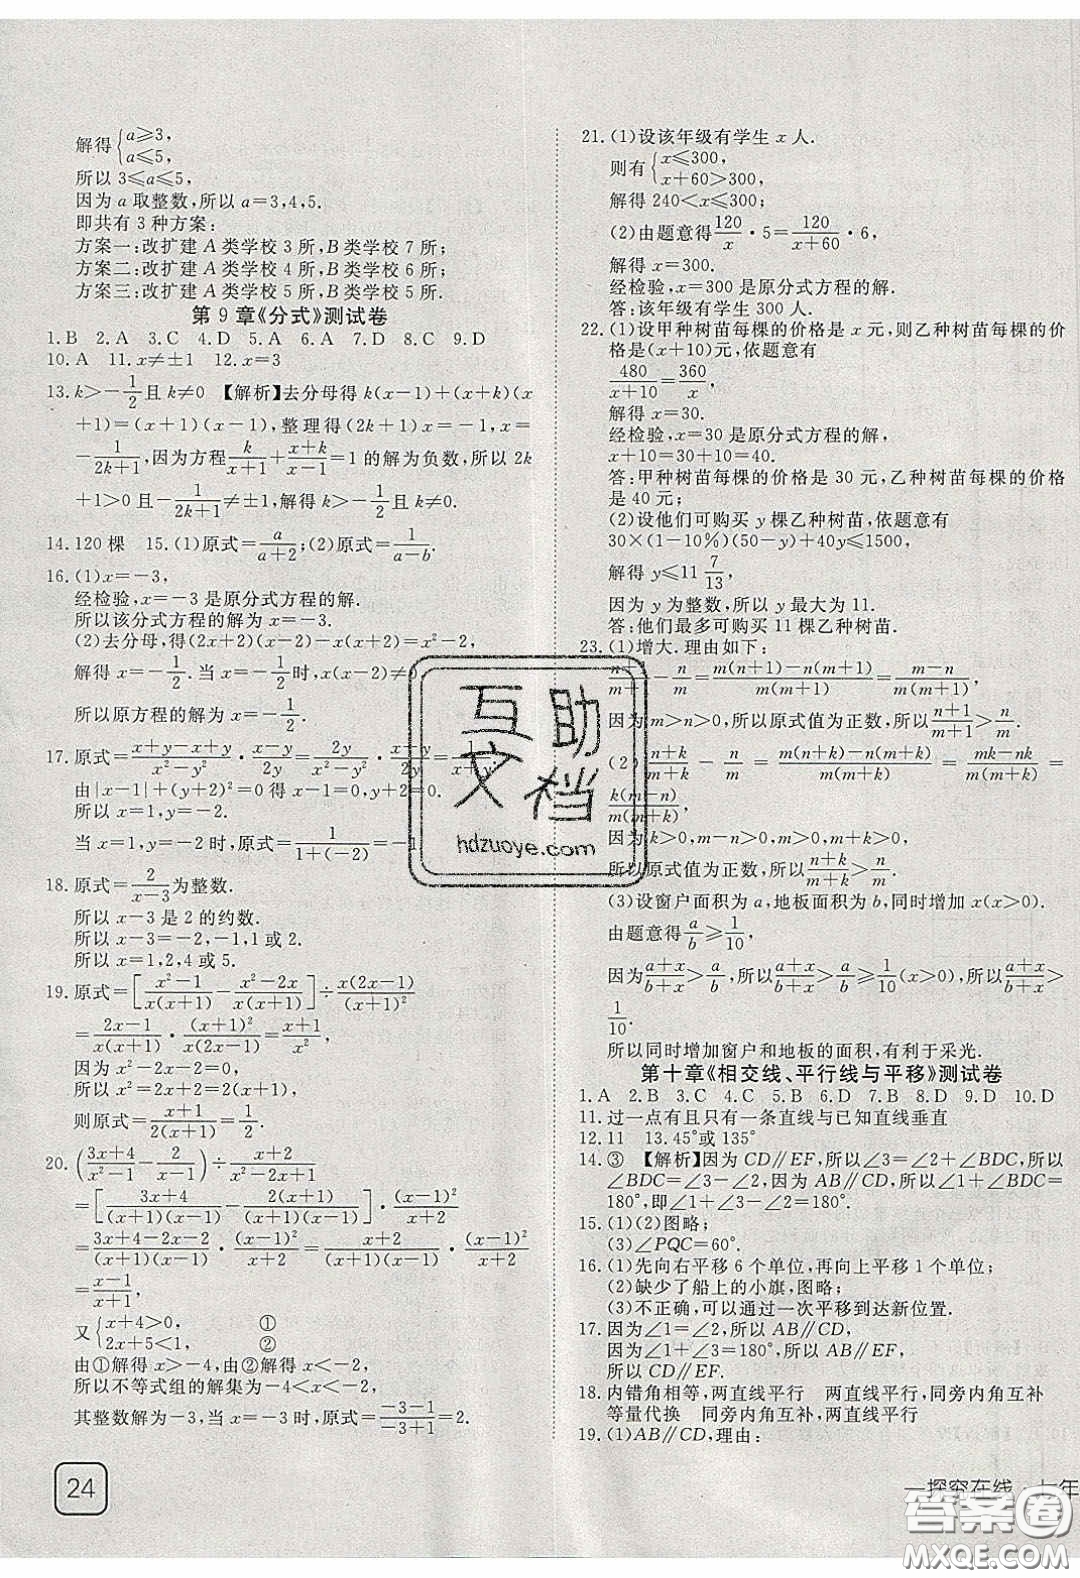 解得{a≥3,
a≤5,
所以 3≤a≤5,
因为 a 取整数,所以 a=3,4,5.
即共有 3 种方案:
方案一:改扩建 A 类学校 3 所,B 类学校 7 所;
方案二:改扩建 A 类学校 4 所,B 类学校 6 所;
方案三:改扩建 A 类学校 5 所,B 类学校 5 所.
第 9 章《分式》测试卷
1. B 2. A 3. C 4. D 5. A 6. A 7. D 8. C 9. D
10. A 11. x≠±1 12. x=3
13. k>-1/2且 k≠0 【解析】去分母得 k(x-1)+(x+k)(x
+1)=(x+1)(x-1),整理得(2k+1)x=-1,所以 x=
-1/(2k+1),因为方程k/(x+1)+(x+k)/(x-1)=1 的解为负数,所以 2k
+1>0 且-1/(2k+1)≠±1,解得 k>-1/2且 k≠0.
14. 120 棵 15. (1)原式=a/(a+2);(2)原式=1/(a-b).
16. (1)x=-3,
经检验,x=-3 是原分式方程的解.
所以该分式方程的解为 x=-3.
(2)去分母,得(2x+2)(x-2)-x(x+2)=x²-2,
解得 x=-1/2. 当 x=-1/2时,x(x-2)≠0
所以原方程的解为 x=-1/2.
17. 原式=(x+y-x+y)/(x²-y²)·(x-y)/2y=2y/(x²-y²)·(x-y)/2y=1/(x+y).
由|x-1|+(y+2)²=0得 x-1=0,y+2=0.
所以 x=1,y=-2.
当 x=1,y=-2 时,原式=1/(1+(-2))=-1
18. 原式=2/(x-3)为整数.
所以 x-3 是 2 的约数.
所以 x-3=-2,-1,1 或 2.
所以 x=1,2,4 或 5.
19. 原式=[(x²-1)/(x(x+1))-(x²-2x)/(x(x+1))]÷x(2x-1)/(x+1)²
=(2x-1)/(x(x+1))·(x+1)²/(x(2x-1))=(x+1)/x².
因为 x²-2x-2=0,
所以 x²=2x+2=2(x+1),
则原式=(x+1)/(2(x+1))=1/2.
20. ((3x+4)/(x²-1)-2/(x-1))÷(x+2)/(x²-2x+1)
=[(3x+4)/((x+1)(x-1))-2(x+1)/((x+1)(x-1))]·(x-1)²/(x+2)
=(3x+4-2x-2)/((x+1)(x-1))·(x-1)²/(x+2)=(x+2)/((x+1)(x-1))·(x-1)²/(x+2)
=(x-1)/(x+1),
又{x+4>0, ①
2x+5<1, ②
由①解得 x>-4,由②解得 x<-2.
所以不等式组的解集为-4<x<-2.
其整数解为-3,当 x=-3 时,原式=(-3-1)/(-3+1)=2.
24
21. (1)设该年级有学生 x 人.
则有{x≤300,
x+60>300,
解得 240<x≤300;
(2)由题意得120/x·5=120/(x+60)·6,
解得 x=300.
经检验,x=300 是原分式方程的解.
答:该年级有学生 300 人.
22. (1)设甲种树苗每棵的价格是 x 元,则乙种树苗每棵的价
格是(x+10)元,依题意有
480/(x+10)=360/x,
解得 x=30.
经检验,x=30 是原分式方程的解.
x+10=30+10=40.
答:甲种树苗每棵的价格是 30 元,乙种树苗每棵的价格
是 40 元;
(2)设他们可购买 y 棵乙种树苗,依题意有
30×(1-10%)(50-y)+40y≤1500,
解得 y≤11 7/13,
因为 y 为整数,所以 y 最大为 11.
答:他们最多可购买 11 棵乙种树苗.
23. (1)增大. 理由如下:
(n+1)/(m+1)-n/m=(m(n+1)-n(m+1))/(m(m+1))=(m-n)/(m(m+1)),
因为 m>n>0,所以原式值为正数,所以(n+1)/(m+1)>n/m.
(2)(n+k)/(m+k)-n/m=(m(n+k)-n(m+k))/(m(m+k))=(mk-nk)/(m(m+k))=
k(m-n)/(m(m+k)),
因为 k>0,m-n>0,m>0,m+k>0,
所以原式值为正数,所以(n+k)/(m+k)>n/m.
(3)设窗户面积为 a,地板面积为 b,同时增加 x(x>0).
由题意得a/b≥1/10,
因为(a+x)/(b+x)>a/b,所以(a+x)/(b+x)>a/b≥1/10(x>0),所以(a+x)/(b+x)>
1/10.
所以同时增加窗户和地板的面积,有利于采光.
第十章《相交线、平行线与平移》测试卷
1. A 2. B 3. C 4. C 5. B 6. B 7. B 8. D 9. D 10. D
11. 过一点有且只有一条直线与已知直线垂直
12. 11 13. 45°或 135°
14. ③ 【解析】因为 CD∥EF,所以∠3=∠2+∠BDC,所以
∠BDC=∠3-∠2,因为 AB∥CD,所以∠1+∠BDC=
180°,即∠1+∠3-∠2=180°.
15. (1)(2)图略;
(3)∠PQC=60°.
16. (1)先向右平移 6 个单位,再向上平移 1 个单位;
(2)缺少了船上的小旗,图略;
(3)不正确,可以通过一次平移到达新位置.
17. 因为∠1=∠2,所以 AB∥CD,
因为∠3+∠1=180°,所以 AB∥EF,
所以 CD∥EF.
18. 内错角相等,两直线平行 两直线平行,同旁内角互补
等量代换 同旁内角互补,两直线平行
19. (1)AB∥CD,理由:
一探究在线 七年
互助
文档
hdzuoye.com
答案圈
MXQE.COM